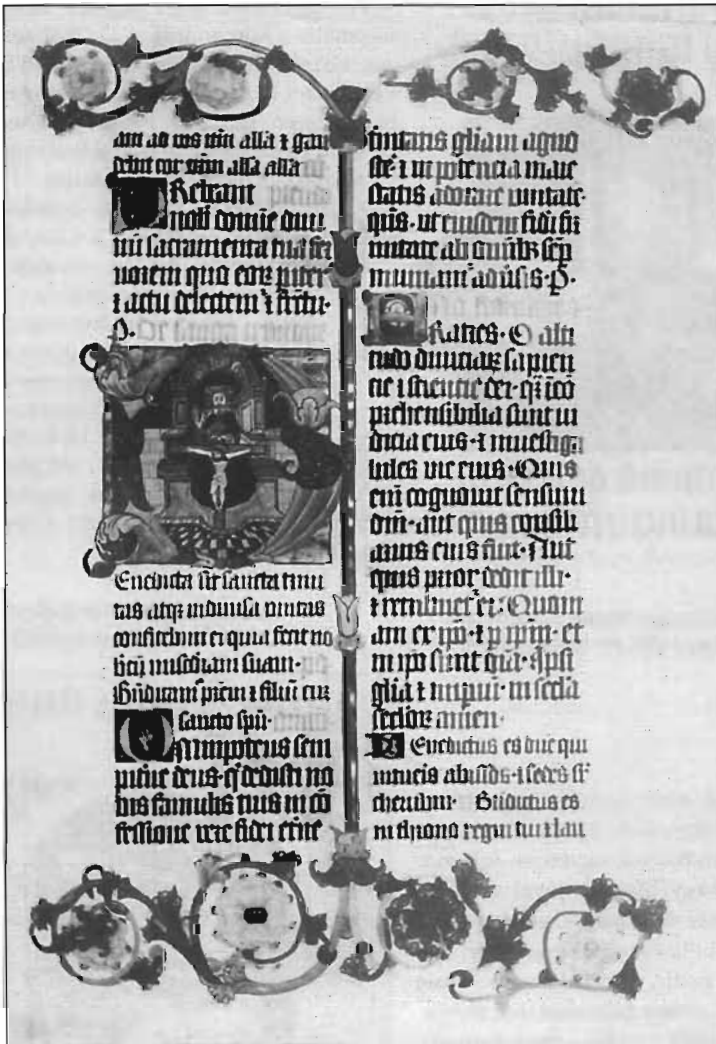 debit cor vrm alla alla
Prebeant
nob domine diui
nū sacramenta tua fer
uorem quo eorꝝ piter
⁊ actu delectem ⁊ fructu·
P·
Enedicta sit sancta trini
tas atqꝫ indiuisa unitas
confitebim ei quia fecit no
bcū misedīam suam·
Bndicam prem ⁊ filiū cū
sancto spū·
Omnipotens sem
piterne deus· q dedisti no
bis famulis tuis in cō
fessione vere fidei eterne
trinitatis gliam agno
scē ⁊ in potencia maie
statis adorare unitate·
qs· ut eiusdem fidei fir
mitate ab omibꝫ semp
muniam aduersis· P·
Fratres· O alti
tudo diuiciaꝝ sapien
cie ⁊ sciencie dei· qȝ īcō
prehensibilia sunt iu
dicia eius· ⁊ inuestiga
biles vie eius· Quis
enī cognouit sensum
dni· aut quis consili
arius eius fuit· Aut
quis prior dedit illi·
⁊ retribuet ei· Quoni
am ex ipo· ⁊ p ipm· et
in ipo sunt oīa· Ipsi
glīa ⁊ imperiū· in secla
secloꝝ amen·
Benedictus es dne qui
intueris abissos· ⁊ sedes sr
cherubim· Bndictus es
in throno regni tui ⁊ lau